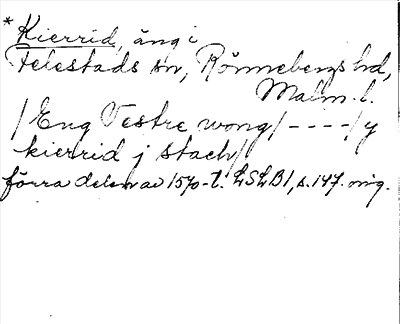 * Kierrid, äng i
Felestads sn, Rönnebergs hd,
Malm. l.
/Eng Vestre wong/----/y
kierrid j stach/
förra delen av 1570-t. LSLB1, s. 147. orig.